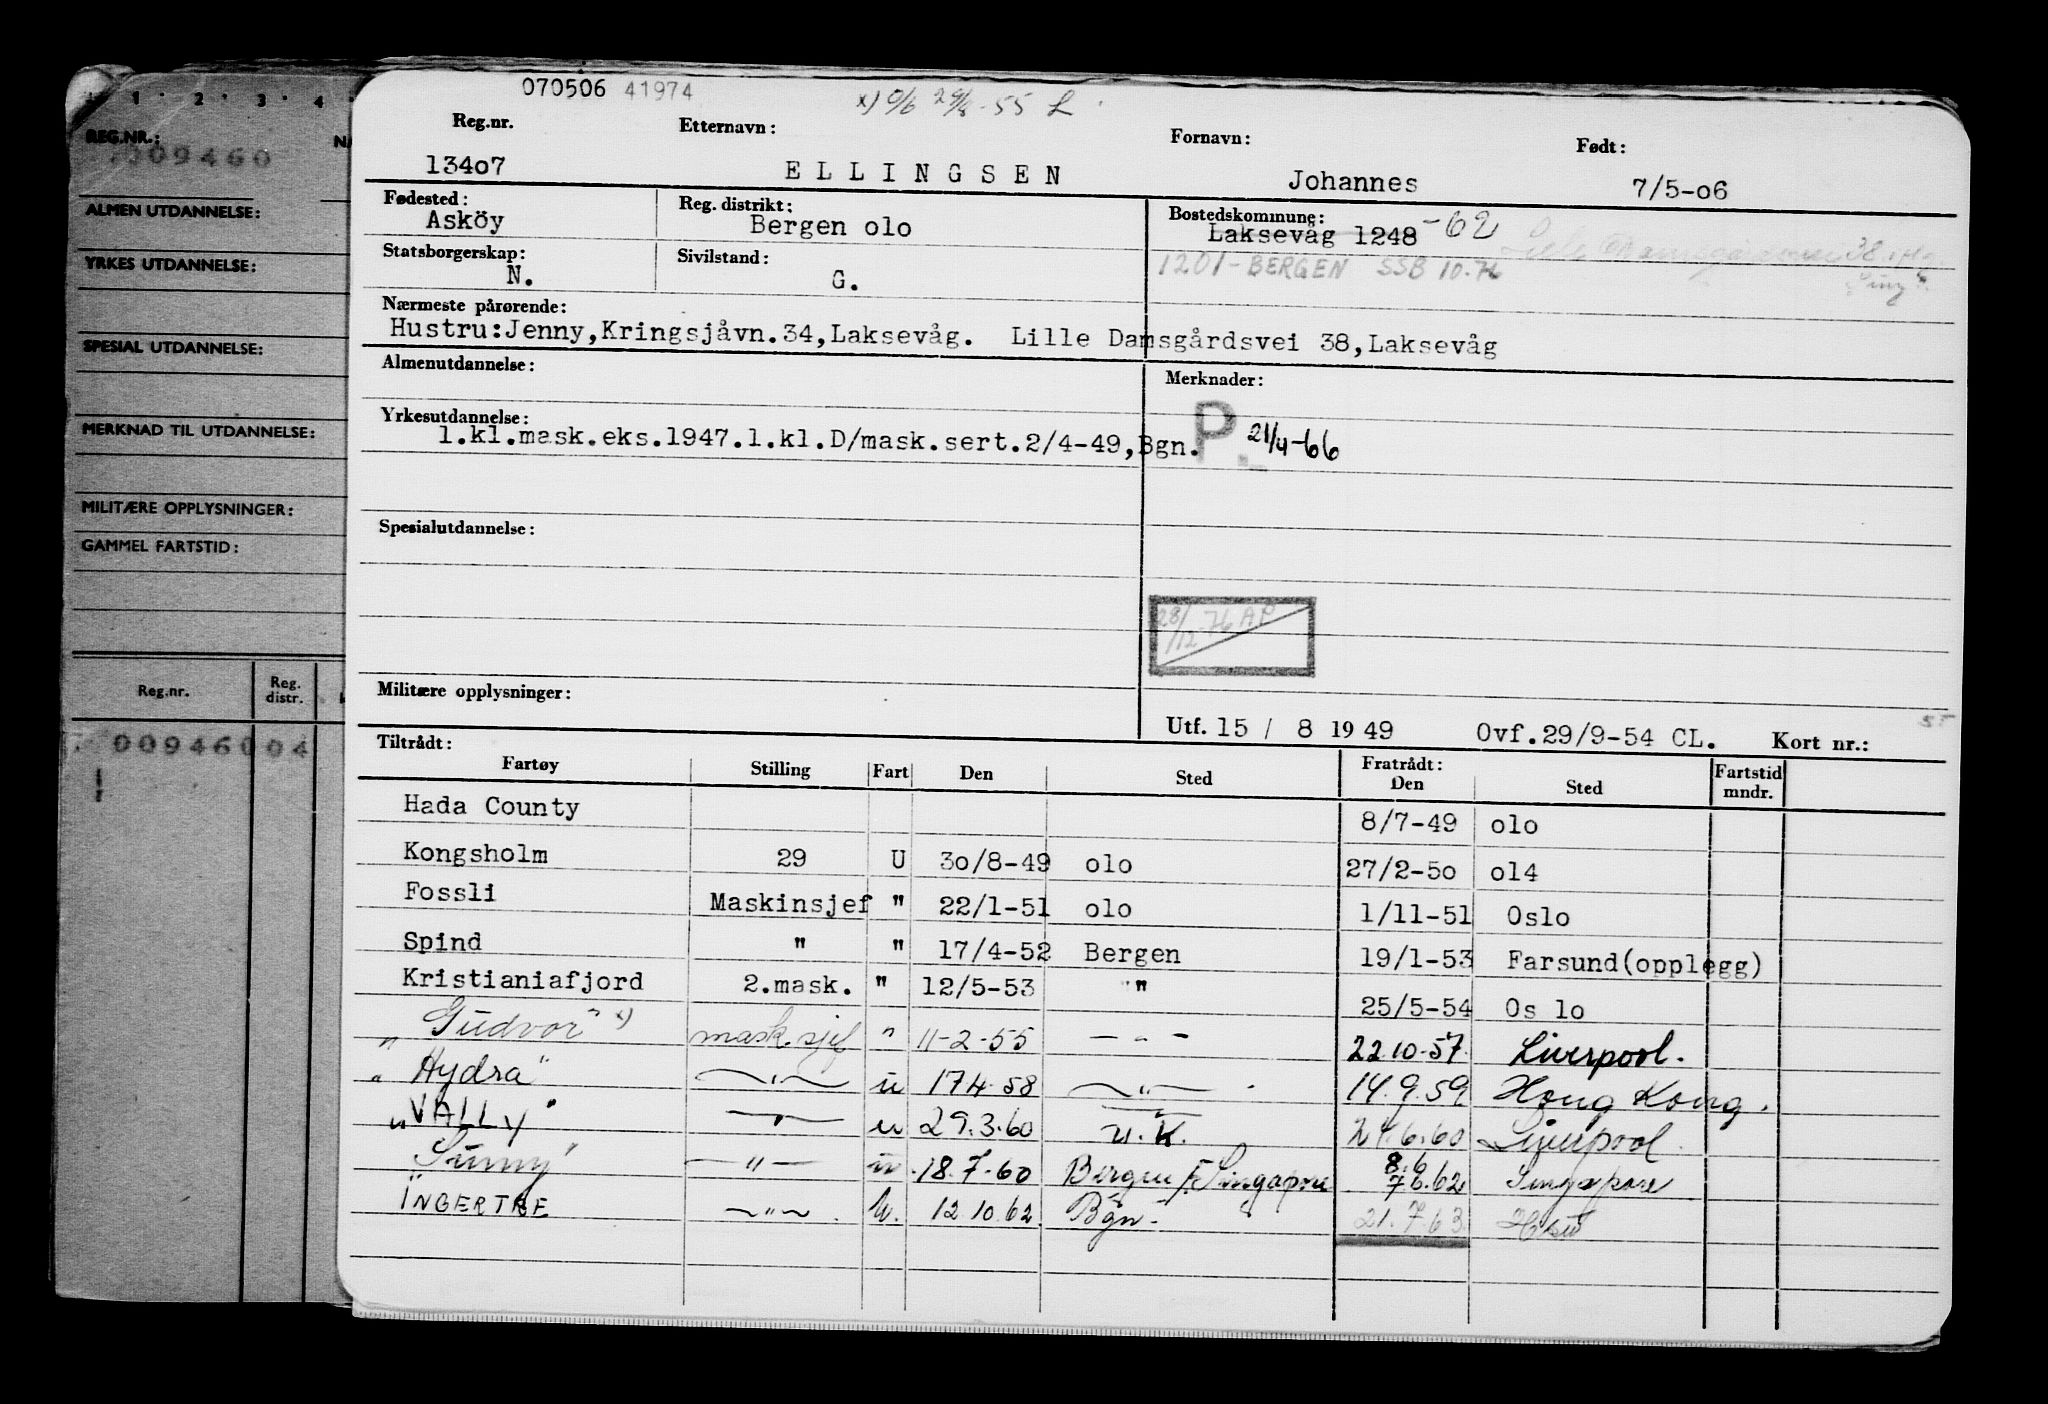 070506 41974 x) 0/6 29/8-55 L
Reg.nr. Etternavn: Fornavn: Født:
13407 ELLINGSEN Johannes 7/5-06
Fødested: Reg. distrikt: Bostedskommune:
Asköy Bergen olo Laksevåg 1248 -62
Statsborgerskap: Sivilstand: 1201-BERGEN SSB 10.76 38
N. G.
Nærmeste pårørende:
Hustru:Jenny,Kringsjåvn.34,Laksevåg. Lille Damsgårdsvei 38,Laksevåg
Almenutdannelse: Merknader:
Yrkesutdannelse:
1.kl.mask.eks.1947.1.kl.D/mask.sert.2/4-49,Bgn. P. 21/4-66
Spesialutdannelse:
28/12.76 AP
Militære opplysninger:
Utf. 15 / 8 19 49 Ovf.29/9-54 CL. Kort nr.:
Tiltrådt: Fratrådt:
Fartøy Stilling Fart Den Sted Den Sted Fartstid mndr.
Hada County 8/7-49 olo
Kongsholm 29 U 30/8-49 olo 27/2-50 ol4
Fossli Maskinsjef " 22/1-51 olo 1/11-51 Oslo
Spind " " 17/4-52 Bergen 19/1-53 Farsund(opplegg)
Kristianiafjord 2.mask. " 12/5-53 "" 25/5-54 Os lo
"Gudvor" x) mask.sjef " 11-2-55 -"- 22.10-57. Liverpool.
"Hydra" -"- u 17.4.58 -"- 14.9.59 Hong Kong.
"VALLY" -"- u 29.3.60 U.K. 21.6.60 Liverpool.
"Sunny" -"- u. 18.7.60 Bergen/f. Singapore 8.6 7.6.62 Singapore
INGERTRE -"- u. 12.10.62. Bgn. 21.7.63
1 2 3 4
REG.NR.:
009460
ALMEN UTDANNELSE:
YRKES UTDANNELSE:
SPESIAL UTDANNELSE:
MERKNAD TIL UTDANNELSE:
MILITÆRE OPPLYSNINGER:
GAMMEL FARTSTID:
Reg.nr. Reg. distr.
00946004